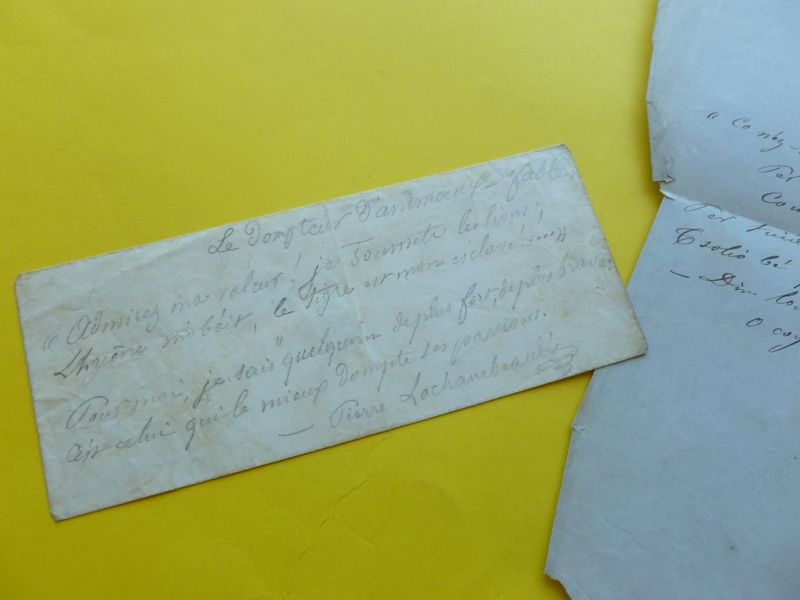 Le Dompteur D'animaux - fable
« Admirez ma valeur ! je soumets les lions ;
L'hyène m'obéit, le tigre est mon esclave.....»
Pour moi, je sais " quelqu'un de plus fort, de plus brave :
C'est celui qui le mieux dompte ses passions.
— Pierre Lachambeaudie
Per
Con
— Din
O